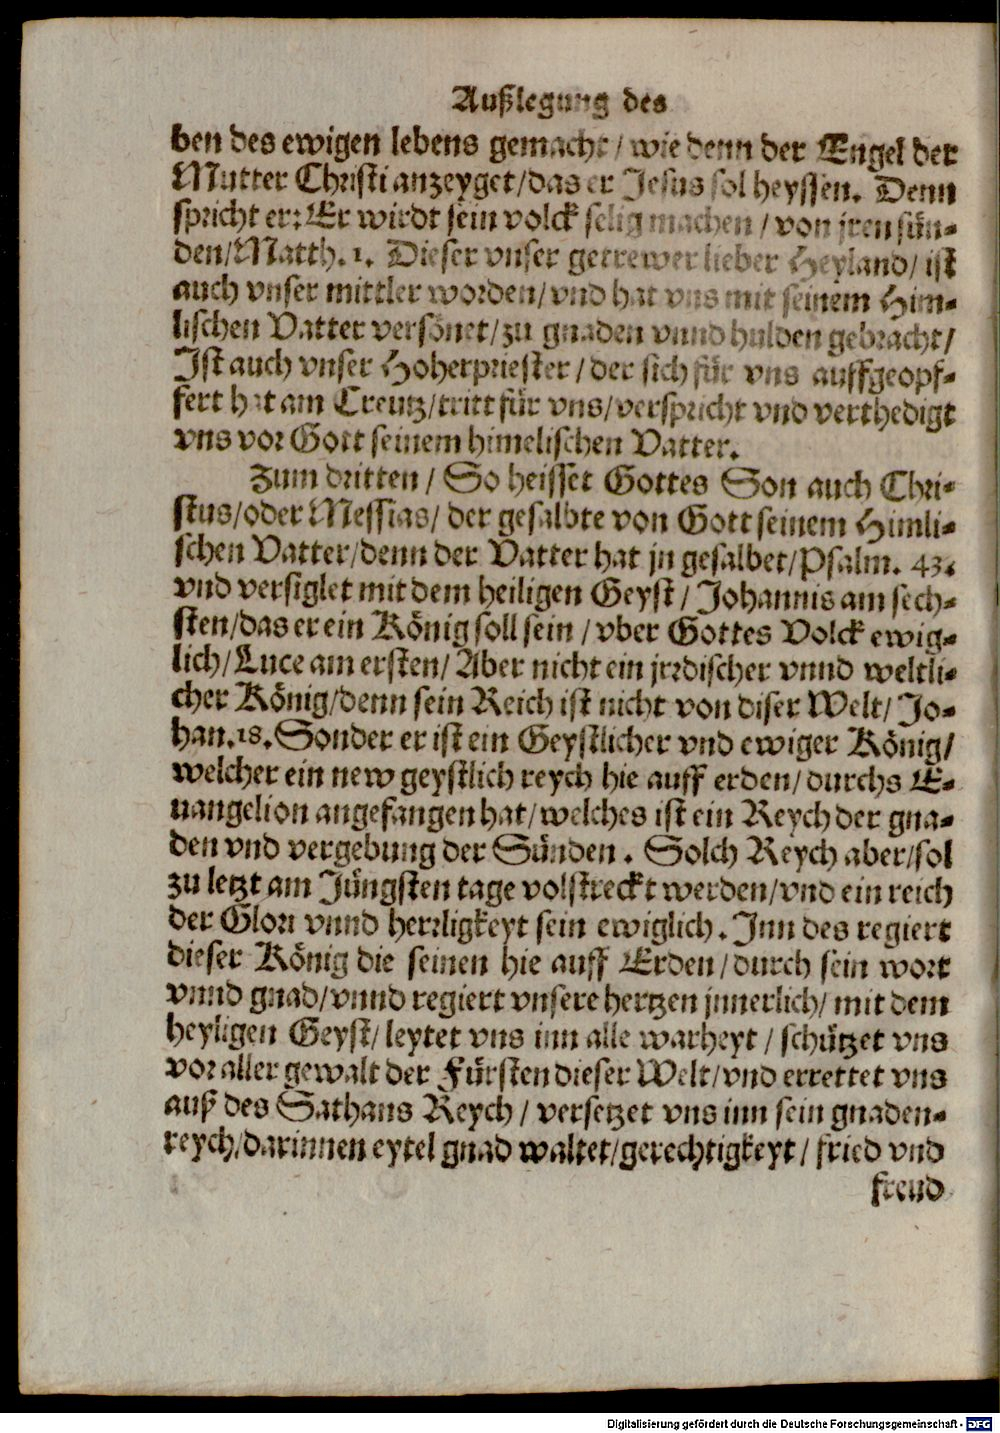 Außlegung des
ben des ewigen lebens gemacht / wie denn der Engel der
Mutter Christi anzeyget/das er Jesus sol heyssen. Denn
spricht er: Er wirdt sein volck selig machen / von jren sün-
den/Matth. 1. Dieser vnser getrewer lieber Heyland/ ist
auch vnser mittler worden/vnd hat vns mit seinem Him-
lischen Vatter versönet/zu gnaden vnnd hulden gebracht/
Ist auch vnser Hoherpriester / der sich für vns auffgeopf-
fert hat am Creutz/tritt für vns/verspricht vnd verthedigt
vns vor Gott seinem himelischen Vatter.
Zum dritten / So heisset Gottes Son auch Chri-
stus/oder Messias/ der gesalbte von Gott seinem Himli-
schen Vatter/denn der Vatter hat jn gesalbet/Psalm. 43.
vnd versiglet mit dem heiligen Geyst / Johannis am sech-
sten/das er ein König soll sein / vber Gottes Volck ewig-
lich/Luce am ersten/ Aber nicht ein jrrdischer vnnd weltli-
cher König/denn sein Reich ist nicht von diser Welt/ Jo-
han. 18. Sonder er ist ein Geystlicher vnd ewiger König/
welcher ein new geystlich reych hie auff erden/durchs E-
uangelion angefangen hat/welches ist ein Reych der gna-
den vnd vergebung der Sünden . Solch Reych aber/sol
zu letzt am Jüngsten tage volstreckt werden/vnd ein reich
der Glori vnnd herrligkeyt sein ewiglich . Inn des regiert
dieser König die seinen hie auff Erden/durch sein wort
vnnd gnad/vnnd regiert vnsere hertzen jnnerlich/ mit dem
heyligen Geyst/leytet vns inn alle warheyt / schützet vns
vor aller gewalt der Fürsten dieser Welt/vnd errettet vns
auß des Sathans Reych / versetzet vns inn sein gnaden-
reych/darinnen eytel gnad waltet/gerechtigkeyt / fried vnd
freud
Digitalisierung gefördert durch die Deutsche Forschungsgemeinschaft - DFG